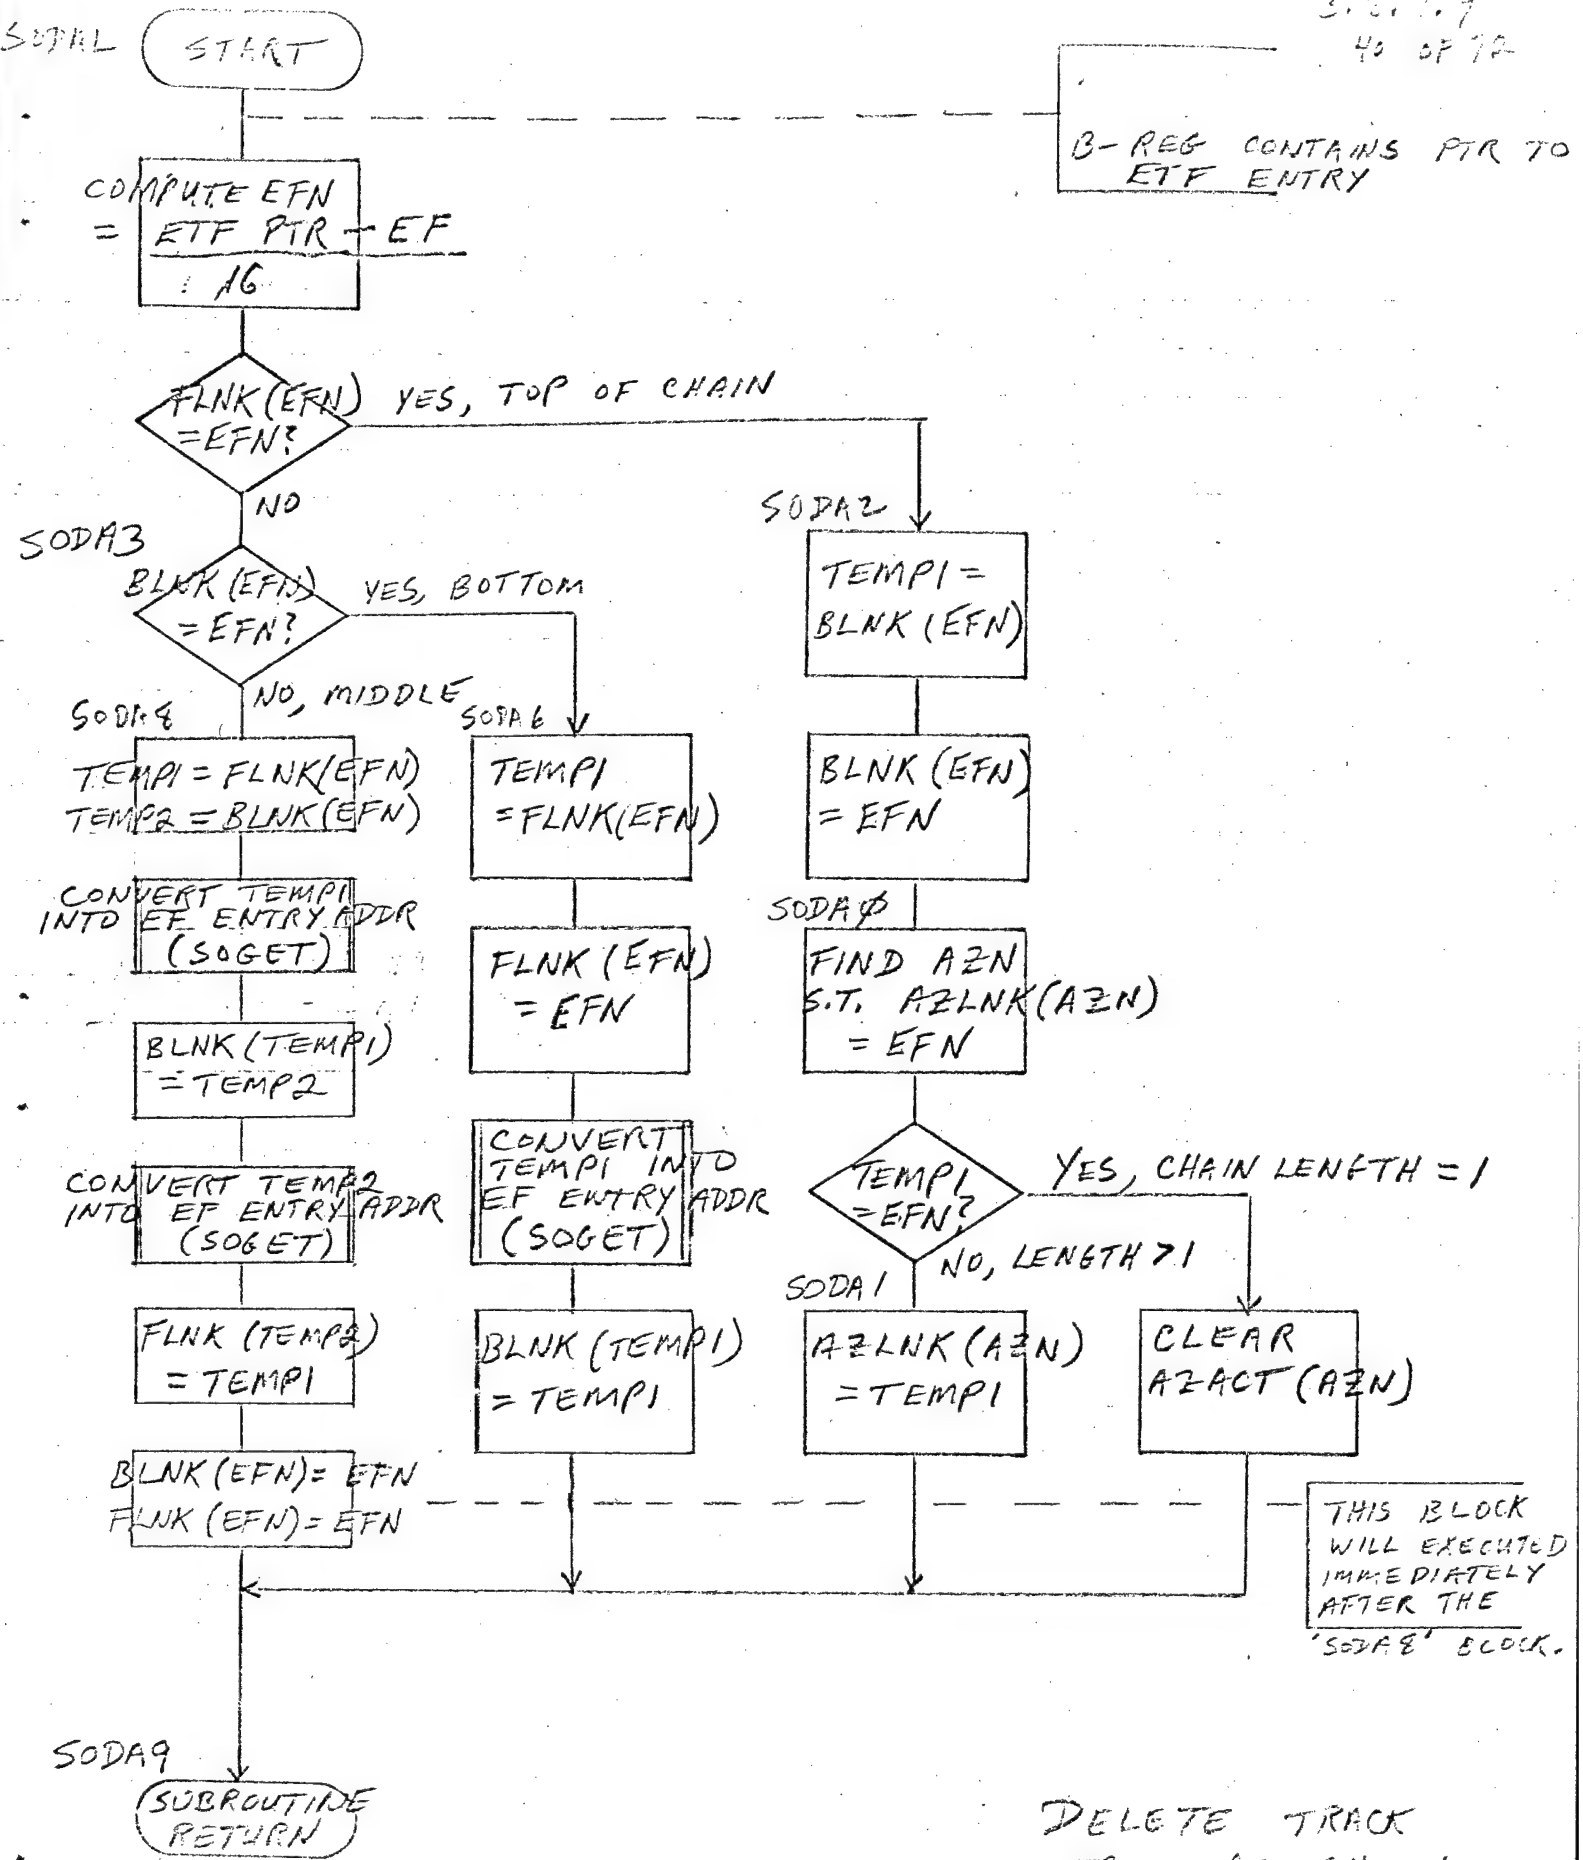 SODAL
START
40 OF 72
B-REG CONTAINS PTR TO
ETF ENTRY
COMPUTE EFN
= ETF PTR - EF
16
FLNK(EFN)
=EFN?
YES, TOP OF CHAIN
NO
SODA3
BLNK(EFN)
=EFN?
YES, BOTTOM
NO, MIDDLE
SODA8
TEMP1 = FLNK(EFN)
TEMP2 = BLNK(EFN)
CONVERT TEMP1
INTO EF ENTRY ADDR
(SOGET)
BLNK(TEMP1)
=TEMP2
CONVERT TEMP2
INTO EF ENTRY ADDR
(SOGET)
FLNK (TEMP2)
= TEMP1
BLNK(EFN)= EFN
FLNK(EFN)= EFN
SODA6
TEMP1
=FLNK(EFN)
FLNK (EFN)
= EFN
CONVERT
TEMP1 INTO
EF ENTRY ADDR
(SOGET)
BLNK (TEMP1)
= TEMP1
SODA2
TEMP1 =
BLNK(EFN)
BLNK(EFN)
= EFN
SODAØ
FIND AZN
S.T. AZLNK(AZN)
= EFN
TEMP1
=EFN?
YES, CHAIN LENGTH = 1
NO, LENGTH > 1
SODA1
AZLNK(AZN)
= TEMP1
CLEAR
AZACT(AZN)
THIS BLOCK
WILL EXECUTED
IMMEDIATELY
AFTER THE
'SODA8' BLOCK.
SODA9
SUBROUTINE
RETURN
DELETE TRACK